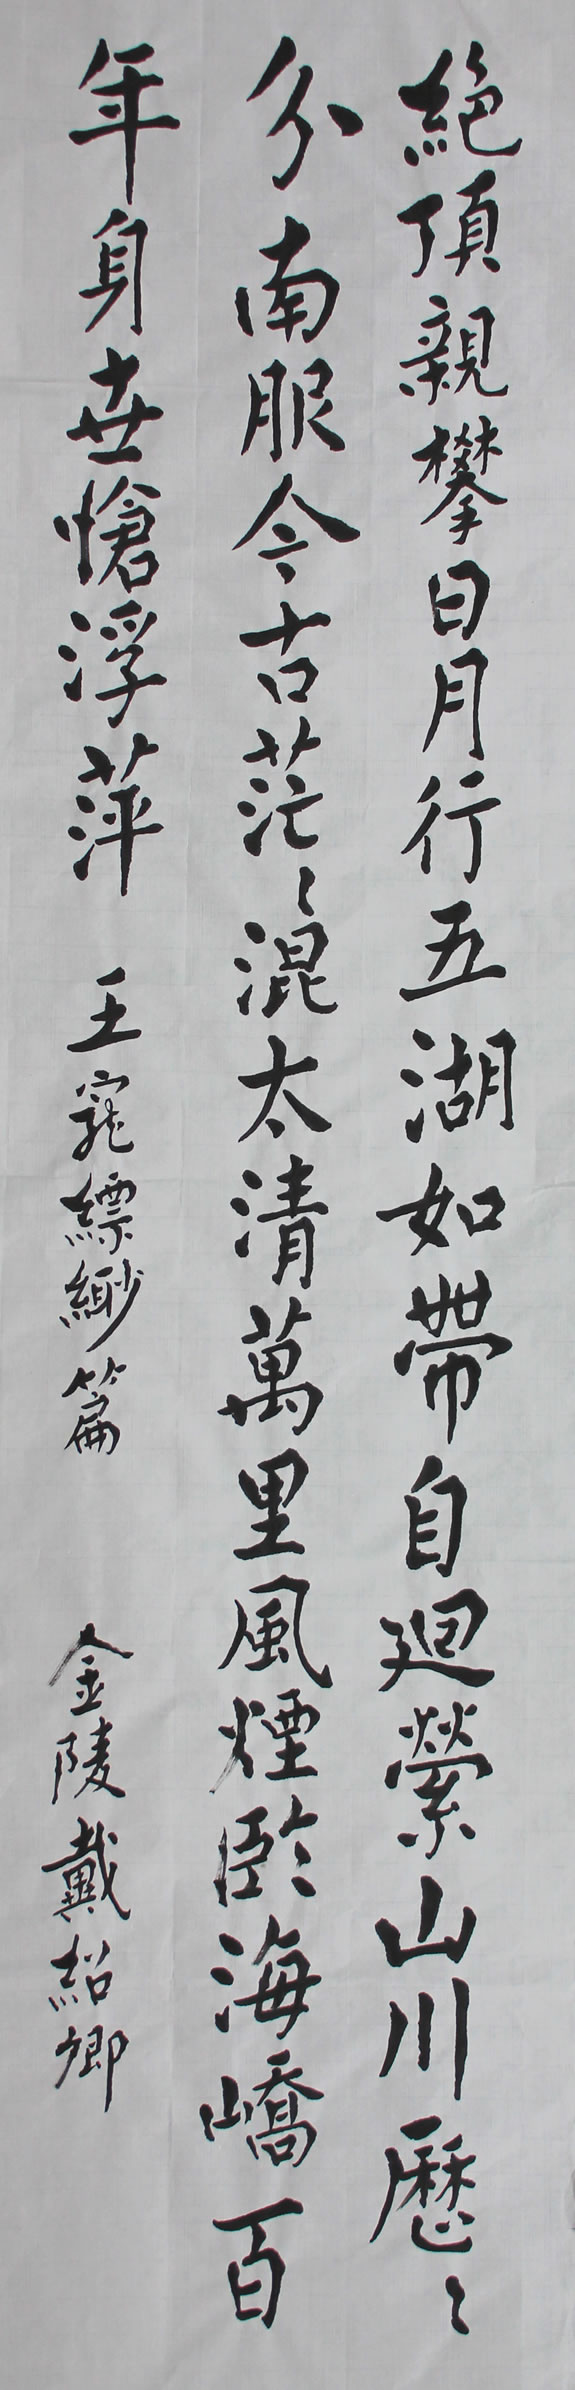 絶頂親攀日月行五湖如帶自迴縈山川歷〻
分南服今古茫〻混太清萬里風煙臨海嶠百
年身世愴浮萍　王寵縹緲篇　金陵戴紹卿